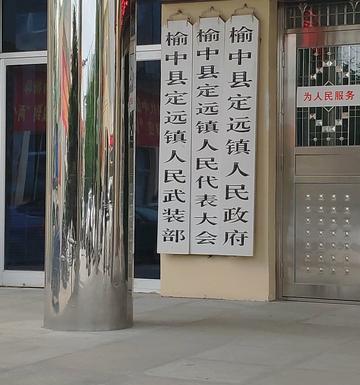 榆中县定远镇人民政府
榆中县定远镇人民代表大会
榆中县定远镇人民武装部
为人民服务